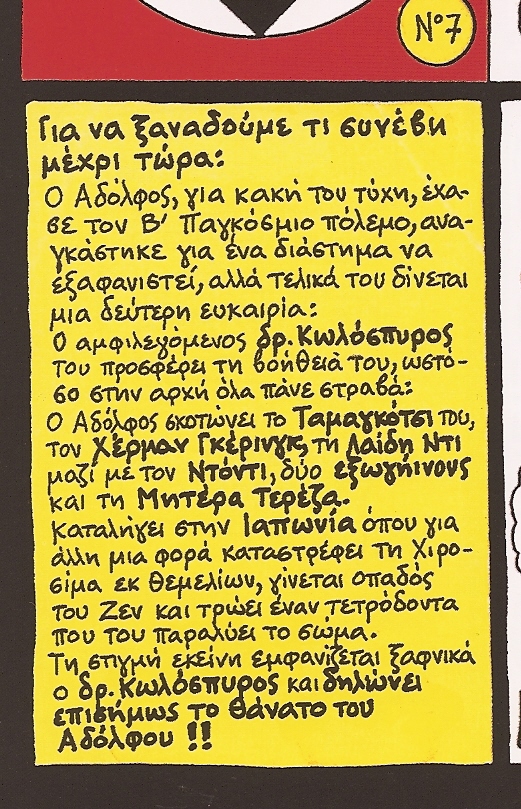 Nº7
Για να ξαναδούμε τι συνέβη
μέχρι τώρα:
Ο Αδόλφος, για κακή του τύχη, έχα-
σε τον Β' Παγκόσμιο πόλεμο, ανα-
γκάστηκε για ένα διάστημα να
εξαφανιστεί, αλλά τελικά του δίνεται
μια δεύτερη ευκαιρία:
Ο αμφιλεγόμενος δρ. Κωλόσπυρος
του προσφέρει τη βοήθειά του, ωστό-
σο στην αρχή όλα πάνε στραβά:
Ο Αδόλφος σκοτώνει το Ταμαγκότσι του,
τον Χέρμαν Γκέρινγκ, τη Λαίδη Ντι
μαζί με τον Ντόντι, δύο εξωγήινους
και τη Μητέρα Τερέζα.
Καταλήγει στην Ιαπωνία όπου για
άλλη μια φορά καταστρέφει τη Χιρο-
σίμα εκ θεμελίων, γίνεται οπαδός
του Ζεν και τρώει έναν τετρόδοντα
που του παραλύει το σώμα.
Τη στιγμή εκείνη εμφανίζεται ξαφνικά
ο δρ. Κωλόσπυρος και δηλώνει
επισήμως το θάνατο του
Αδόλφου !!